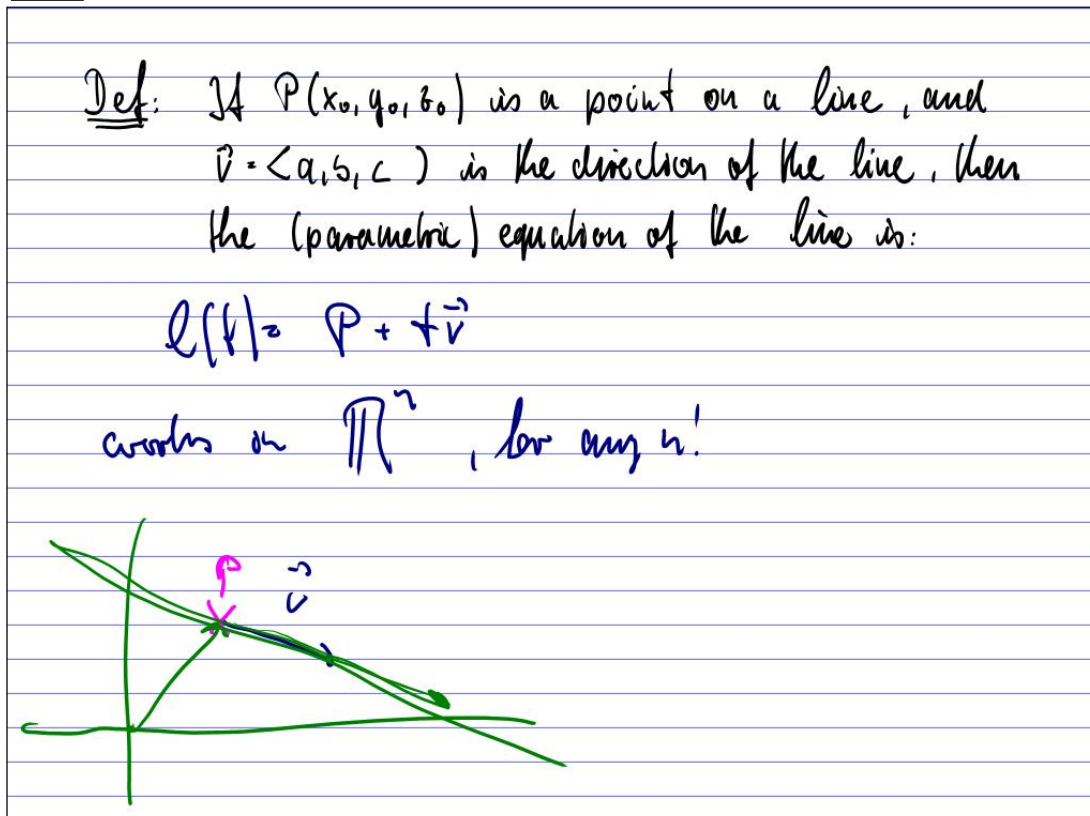 Def: If P(x₀, y₀, z₀) is a point on a line, and
v⃗ = <a, b, c> is the direction of the line, then
the (parametric) equation of the line is:
l(t) = P + t v⃗
works in ℝⁿ, for any n!
P
v⃗